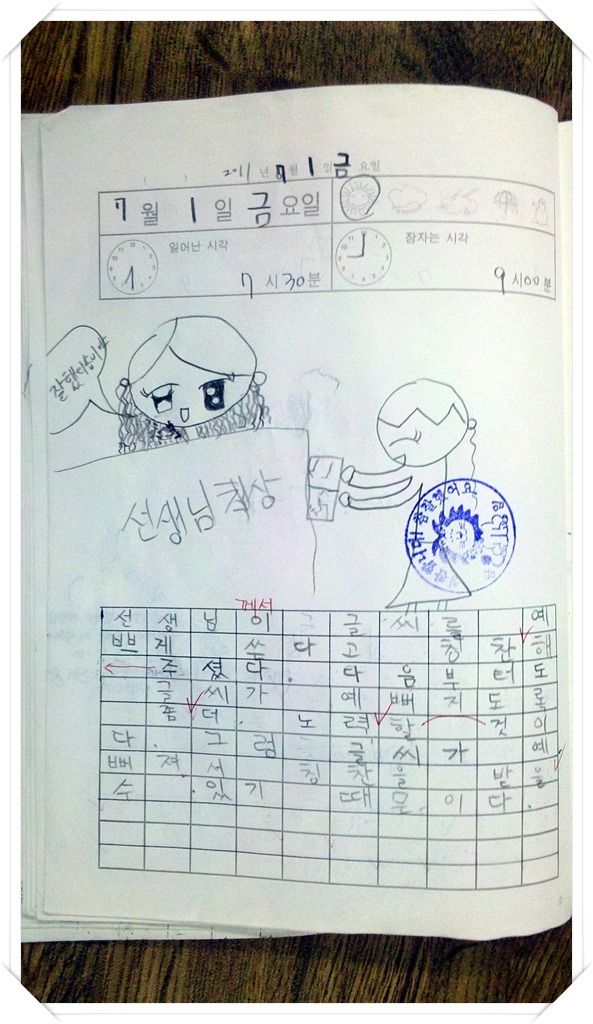 2011 년 7 월 1 일 금 요일
7 월 1 일 금 요일
일어난 시각
잠자는 시각
7 시 30 분
9 시 00 분
선생님 책상
께서
선생님이 글씨를 예
쁘게 쓴다고 칭찬해
주셨다. 다음부터도
글씨가 예뻐지도록
좀더. 노력할 것이
다. 그럼 글씨가 예
뻐져서 칭찬을 받을
수 있기 때문이다.